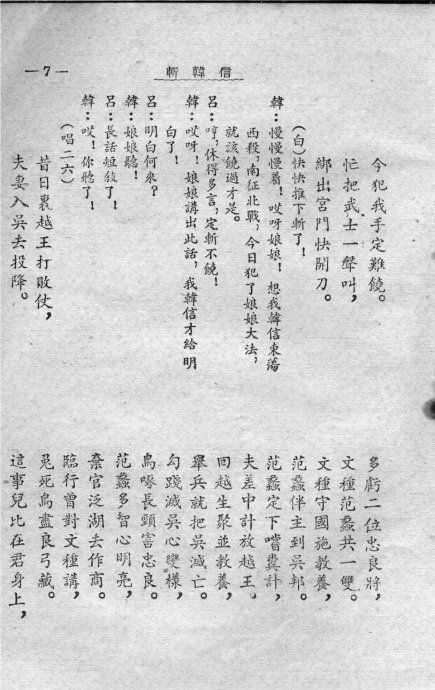 —7—
斬韓信
今犯我手定難饒。
忙把武士一聲叫，
綁出宮門快開刀。
（白）快快推下斬了！
韓：慢慢慢着！哎呀娘娘！想我韓信東蕩
西殺，南征北戰，今日犯了娘娘大法，
就該饒過才是。
呂：哼，休得多言，定斬不饒！
韓：哎呀！娘娘講出此話，我韓信才給明
白了！
呂：明白何來？
韓：娘娘聽！
呂：長話短敍了！
韓：哎！你聽了！
（唱二六）
昔日裏越王打敗仗，
夫妻入吳去投降。
多虧二位忠良將，
文種范蠡共一雙。
文種守國施教養，
范蠡伴主到吳邦。
范蠡定下嚐糞計，
夫差中計放越王。
回越生聚並教養，
舉兵就把吳滅亡。
勾踐滅吳心變樣，
鳥喙長頸害忠良。
范蠡多智心明亮，
棄官泛湖去作商。
臨行曾對文種講，
兎死鳥盡良弓藏。
這事兒比在君身上，